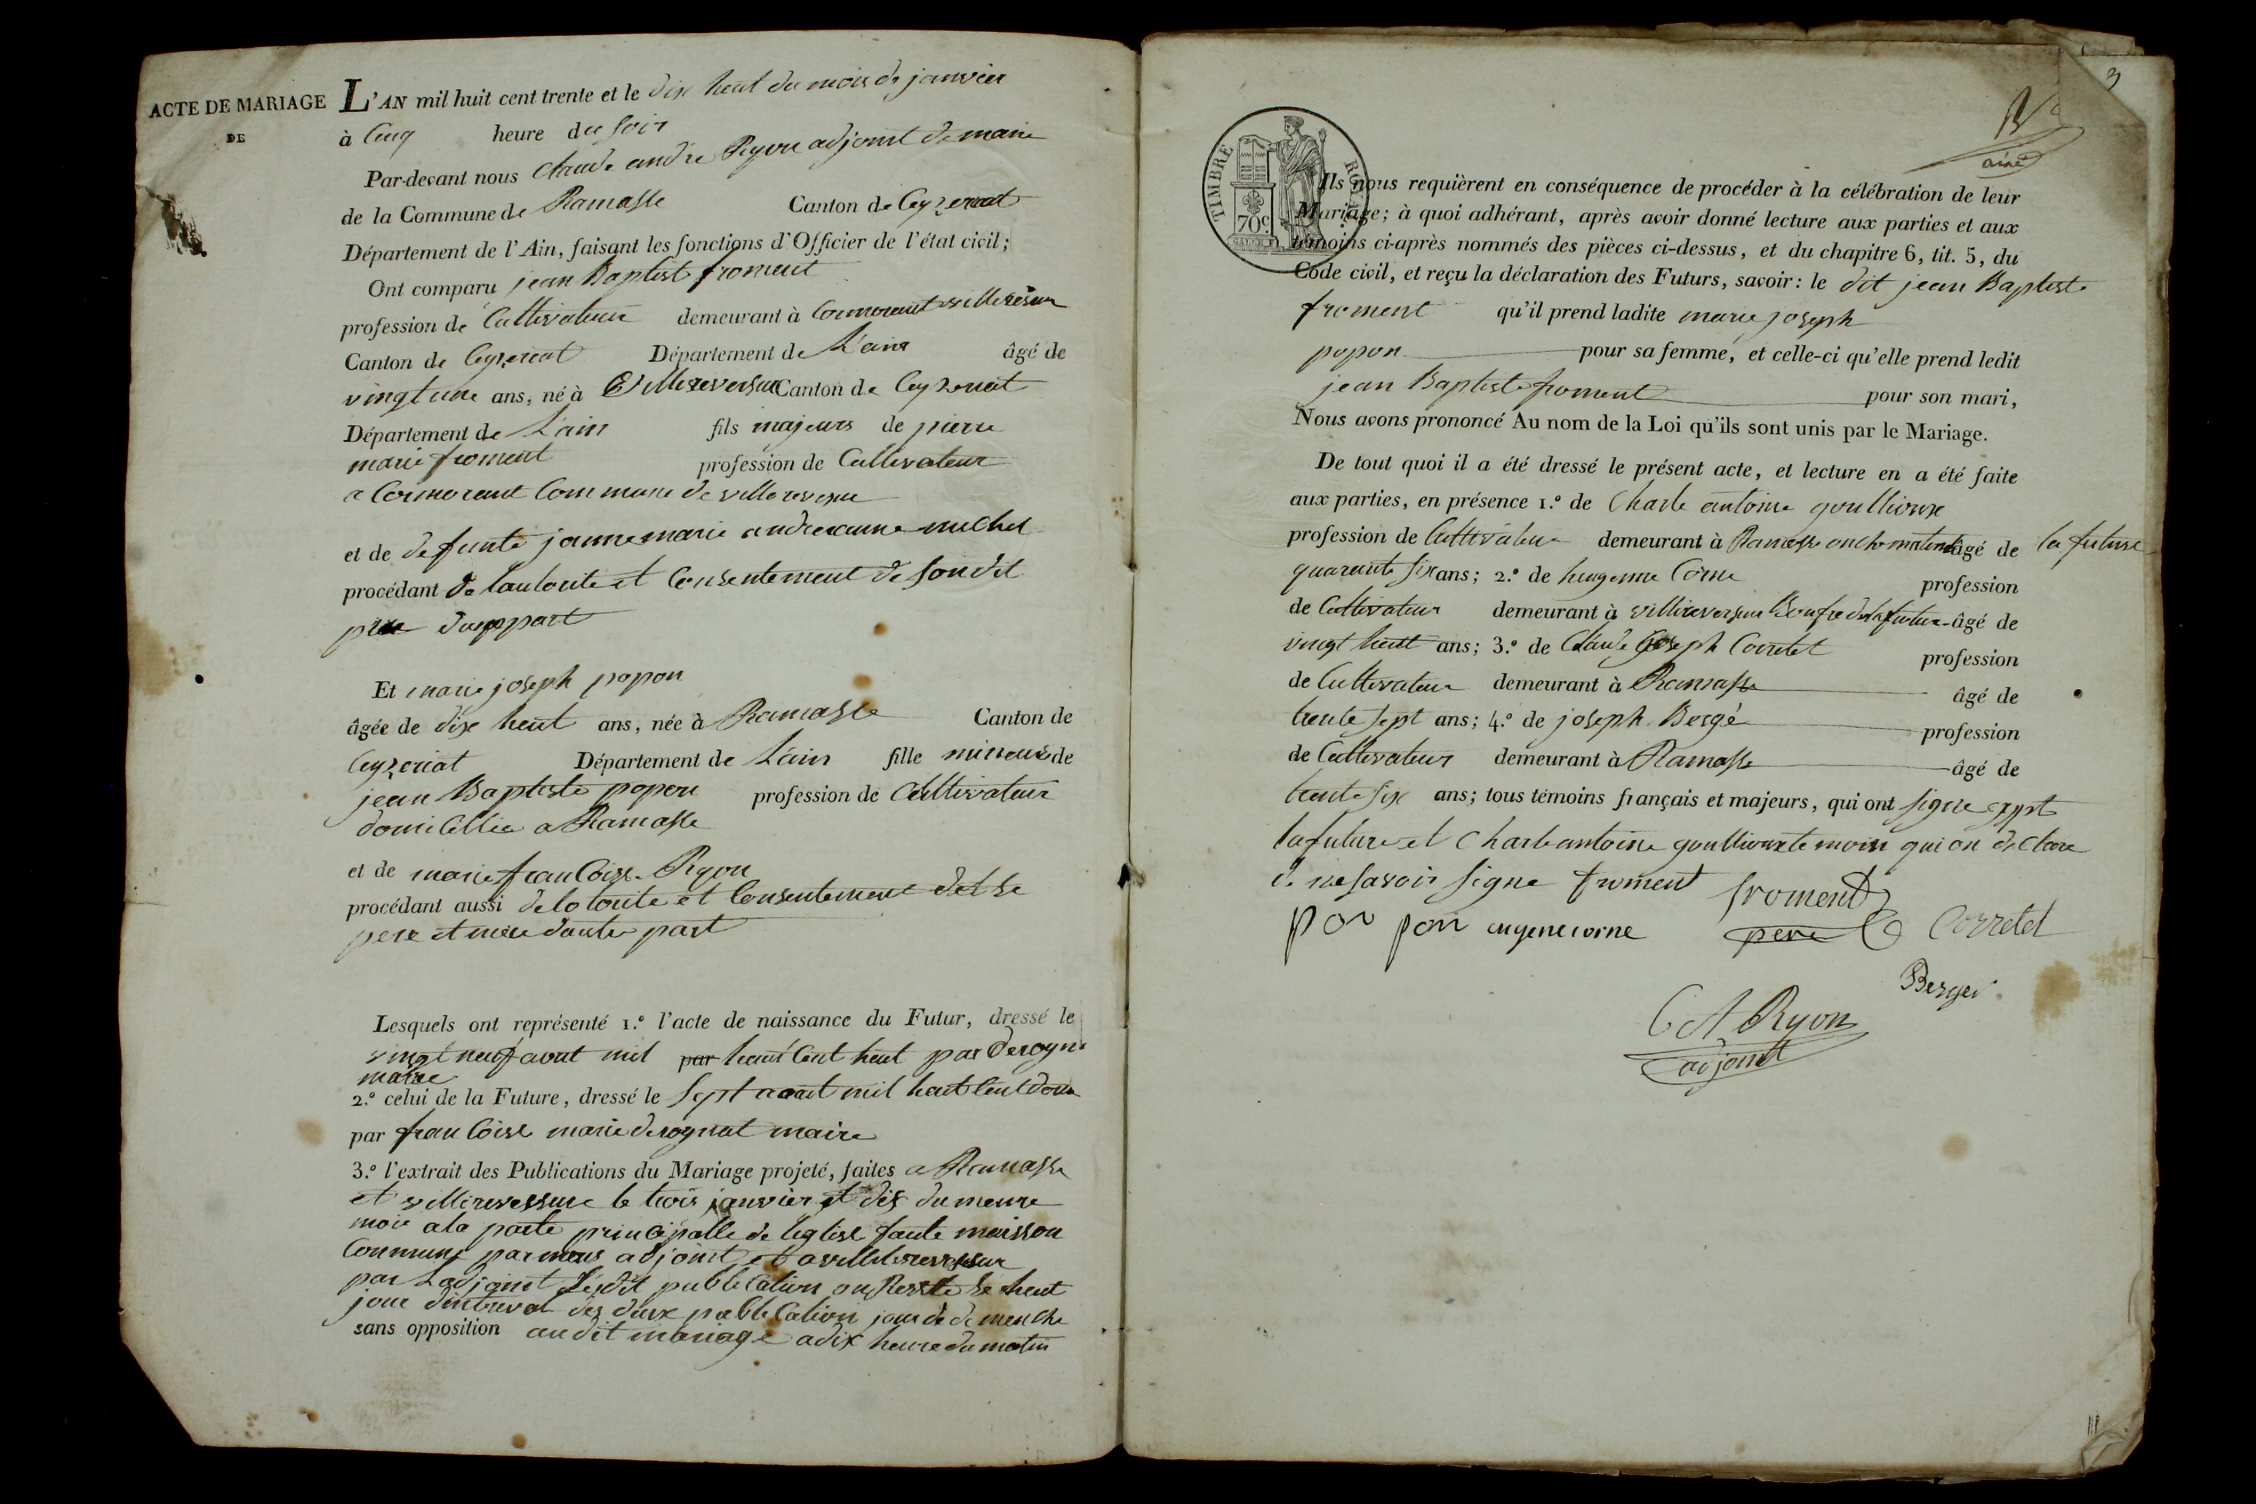 ACTE DE MARIAGE
DE
L'AN mil huit cent trente et le dix heut du mois de janvier
à Cinq heure du soir
Par-devant nous Claude andre Ryon adjoint de maire
de la Commune de Ramasse Canton de Ceyzeriat
Département de l'Ain, faisant les fonctions d'Officier de l'état civil;
Ont comparu jean Baptist froment
profession de Cultivateur demeurant à Cormorant villereversur
Canton de Ceyzeriat Département de L'ain âgé de
vingt une ans, né à Villereversur Canton de Ceyzeriat
Département de L'ain fils majeurs de pierre
marie froment profession de Cultivateur
a Cormorant Commune de villereversur
et de defunte jannemarie andreanne michel
procédant de lautorite et Consentement de son dit
pere dunppart
Et marie joseph popon
âgée de dix heut ans, née à Ramasse Canton de
Ceyzeriat Département de L'ain fille mineure de
jean Baptiste popon profession de Cultivateur
domicillie a Ramasse
et de marie franCoise Ryon
procédant aussi de lotorite et Consentement de se
pere et mere dautre part
Lesquels ont représenté 1.º l'acte de naissance du Futur, dressé le
vingt neuf avout mil par heuit Cent heut par derogna
maire
2.º celui de la Future, dressé le sept avout mil heut Cent douse
par franCoise marie derognat maire
3.º l'extrait des Publications du Mariage projeté, faites a Ramasse
et villereversure le trois janvier et dix du meme
moie a la porte principalle de leglise faute maisson
Commune par nous adjoint et a villereversur
par Ladjoint Lesdit publiCation on Reste le heut
jour dintreval des deux publiCation jour de dimenche
sans opposition au dit mariage a dix heure du matin
3
aine
TIMBRE ROYAL
70c
Ils nous requièrent en conséquence de procéder à la célébration de leur
Mariage; à quoi adhérant, après avoir donné lecture aux parties et aux
témoins ci-après nommés des pièces ci-dessus, et du chapitre 6, tit. 5, du
Code civil, et reçu la déclaration des Futurs, savoir: le dit jean Baptiste
froment qu'il prend ladite marie joseph
popon pour sa femme, et celle-ci qu'elle prend ledit
jean Baptiste froment pour son mari,
Nous avons prononcé Au nom de la Loi qu'ils sont unis par le Mariage.
De tout quoi il a été dressé le présent acte, et lecture en a été faite
aux parties, en présence 1.º de Charle antoine goullioux
profession de Cultivateur demeurant à Ramasse oncle matern âgé de la future
quarante six ans; 2.º de heugenne Corne profession
de Cultivateur demeurant à villereversure Beaufre du futur âgé de
vingt heut ans; 3.º de Claude joseph Corretet profession
de Cultivateur demeurant à Ramasse âgé de
trente sept ans; 4.º de joseph Bergé profession
de Cultivateur demeurant à Ramasse âgé de
trente six ans; tous témoins français et majeurs, qui ont signe expt
la future et Charle antoine goullioux temoin qui on declare
de ne savoir signe froment froment
por pon eugene corne pere Corretet
Berger
C A Ryon
adjoint